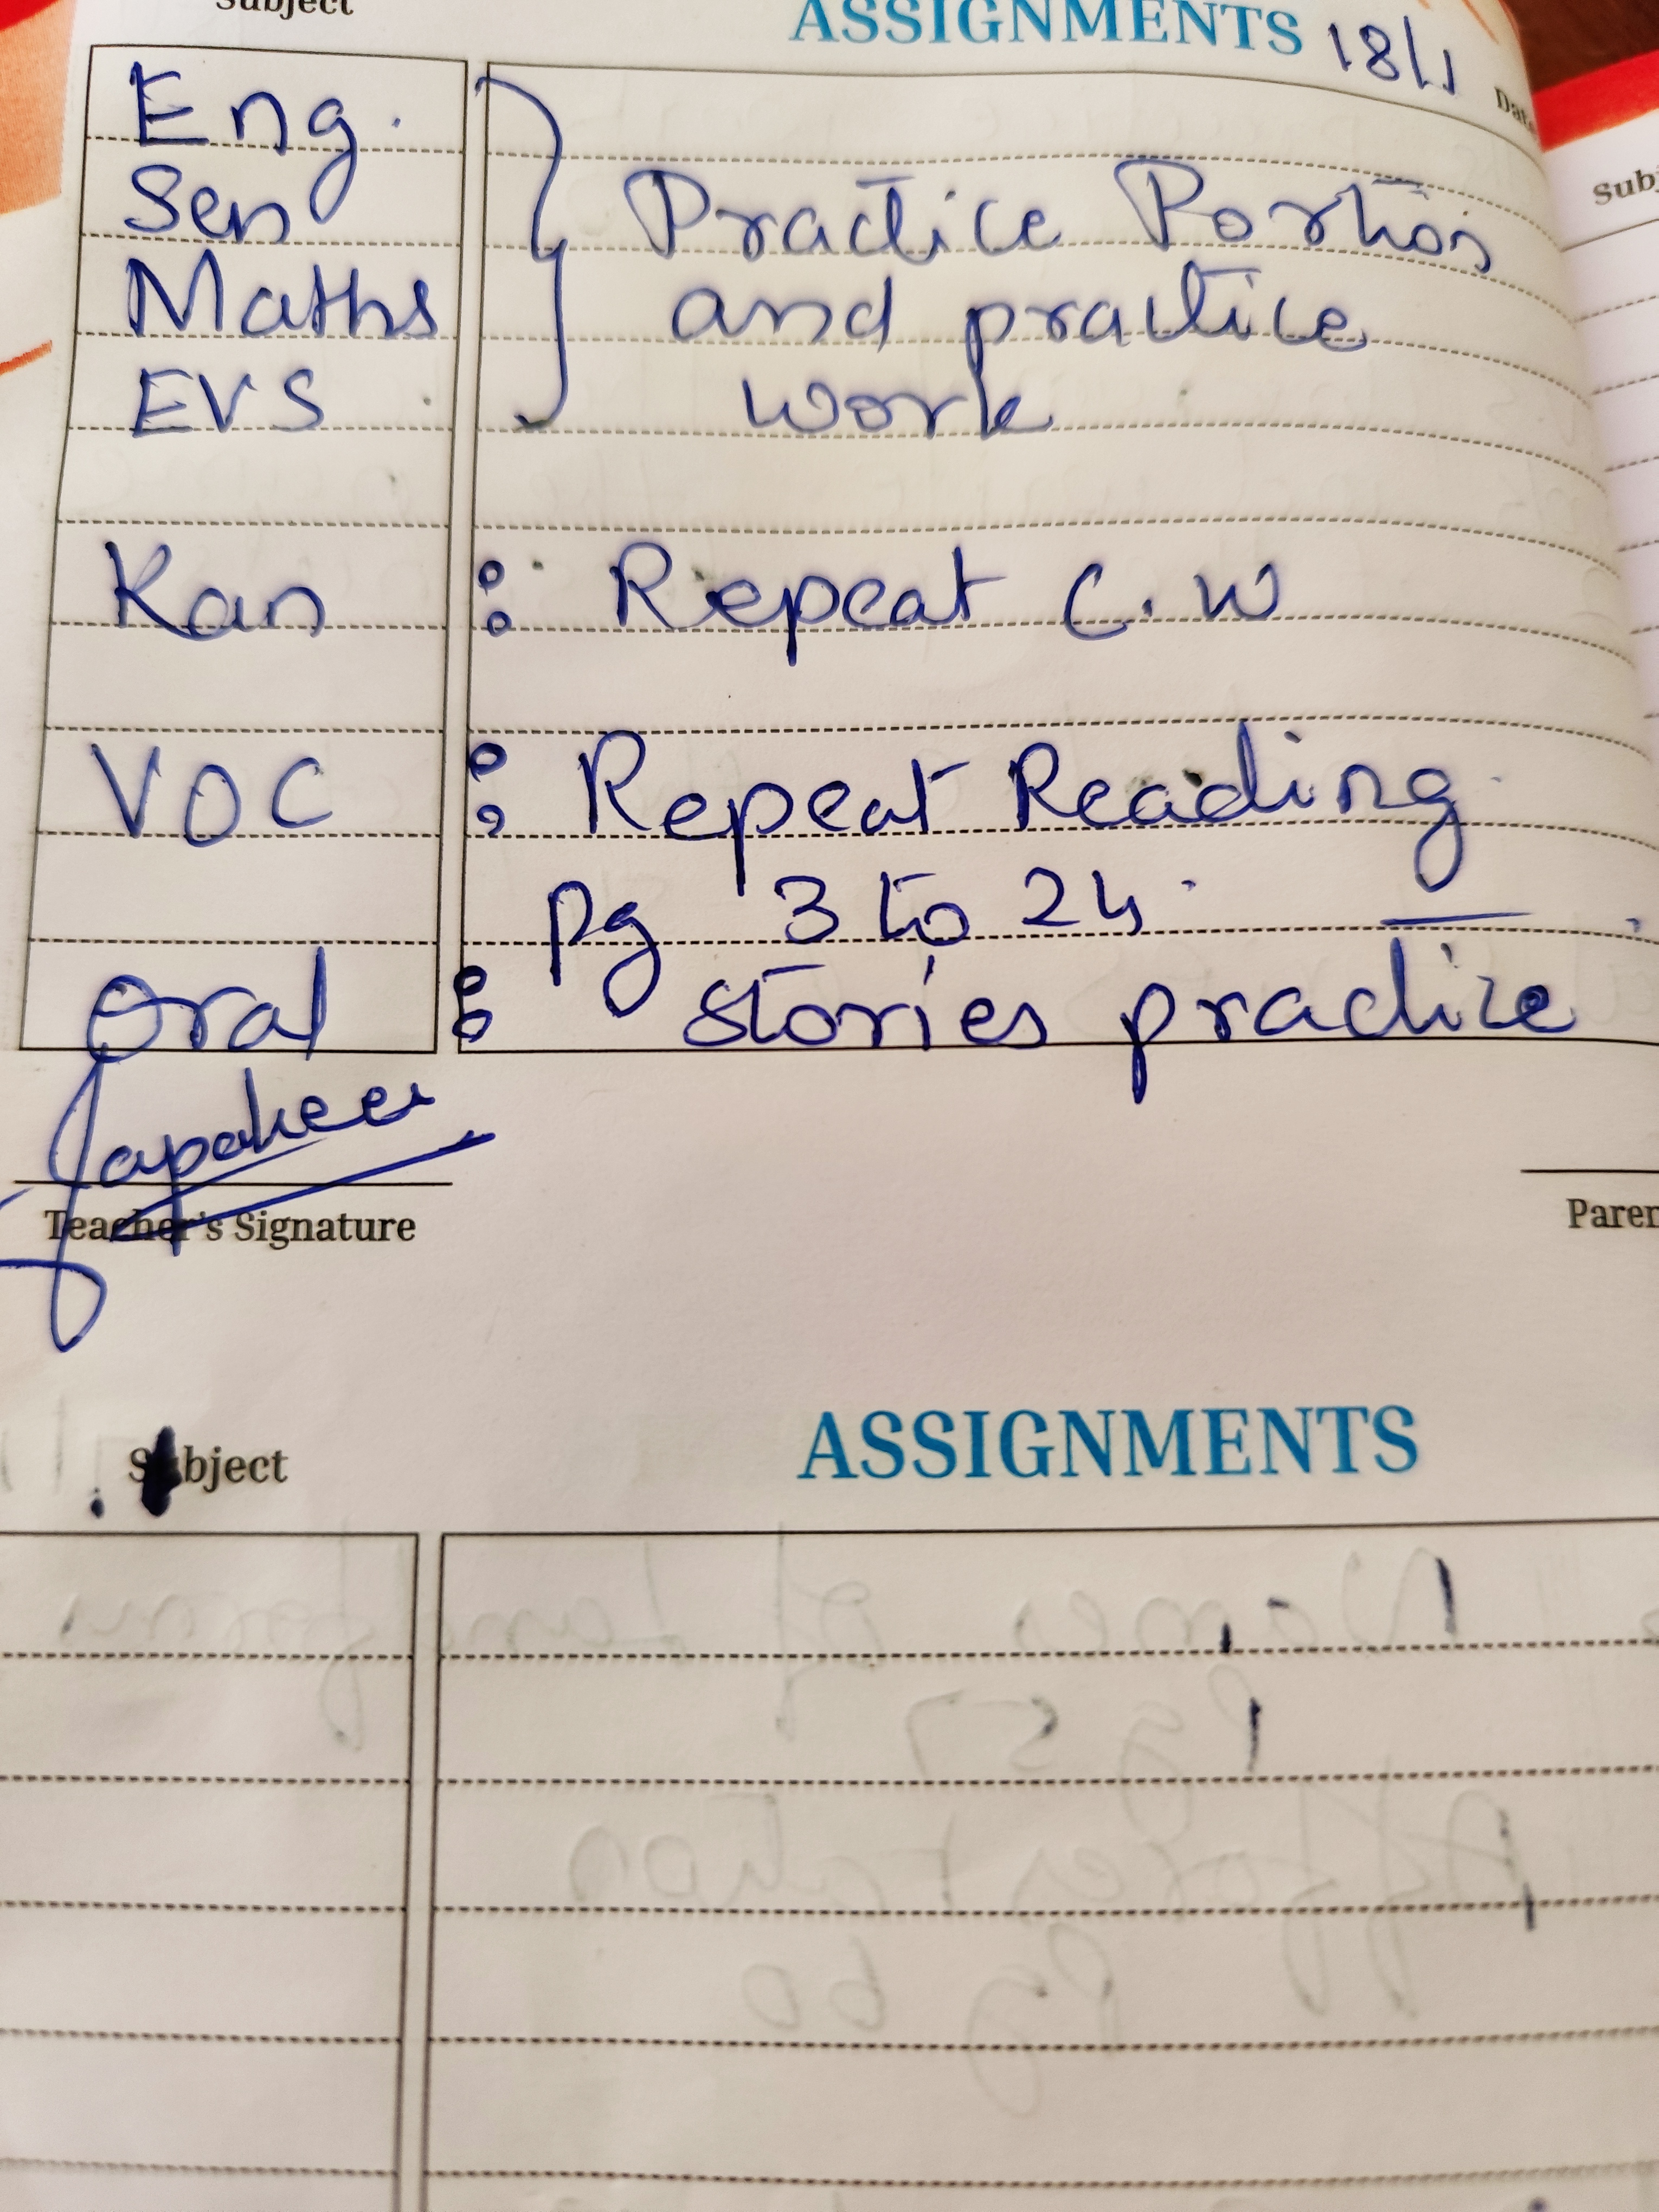 Subject ASSIGNMENTS 18/1 Date
Eng.
Sen Practice Portion
Maths and practice
EVS work
Kan : Repeat C.W
VOC : Repeat Reading.
pg 3 to 24.
Oral : stories practice
Teacher's Signature Paren
Subject ASSIGNMENTS
Subj